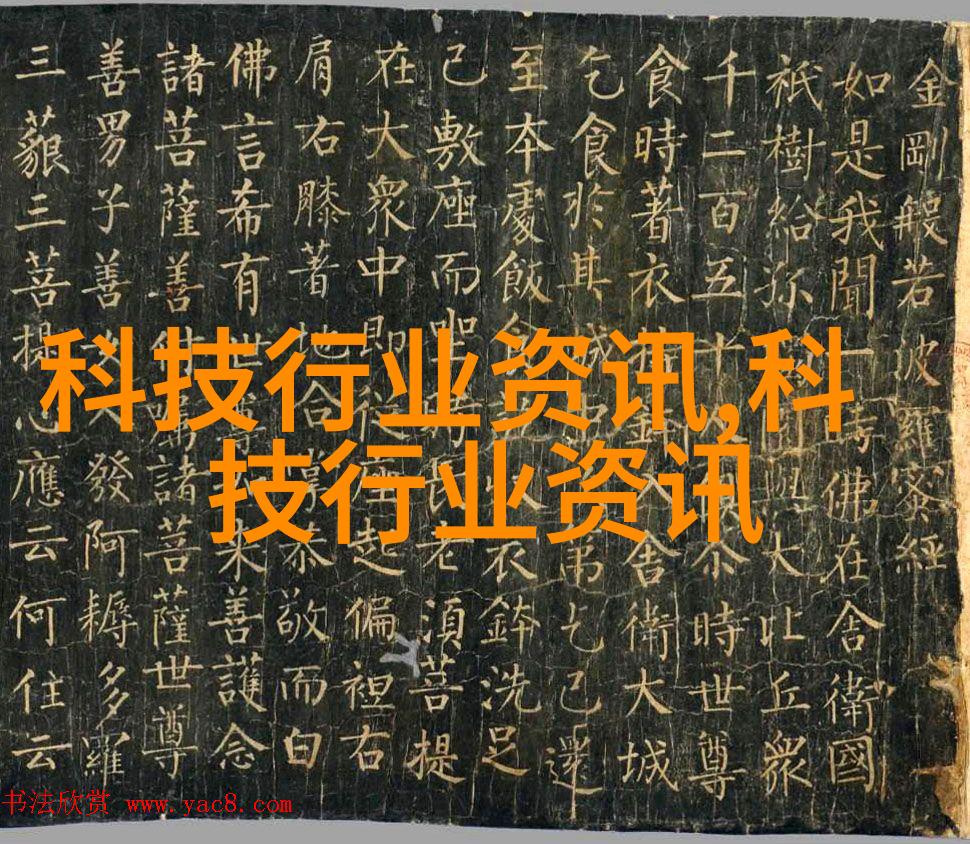 金剛般若波羅蜜經
如是我聞一時佛在舍衛國
祇樹給孤園與大比丘眾
千二百五十尒時世尊
食時著衣持鉢入舍衛大城
乞食於其城中弟乞已還
至本處飯食收衣鉢洗足
已敷座而坐時長老須菩提
在大眾中即從座起偏袒右
肩右膝著地合掌恭敬而白
佛言希有世尊來善護念
諸菩薩善付囑諸菩薩世尊
善男子善人發阿耨多羅
三藐三菩提心應云何住云
科技行业资讯,科
技行业资讯
书法欣赏 www.yac8.com